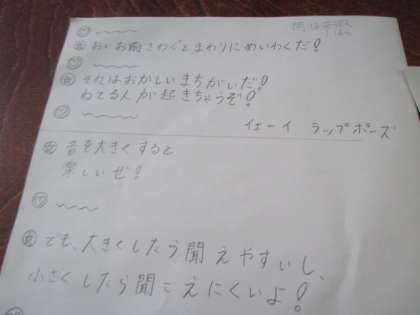 おいお前さわぐとまわりにめいわくだ!
それはおかしいまちがいだ!
ねてる人が起きちゃうぞ!
イェーイ ラップポーズ
音を大きくすると
楽しいぜ!
でも、大きくしたら聞えやすいし、
小さくしたら聞こえにくいよ!